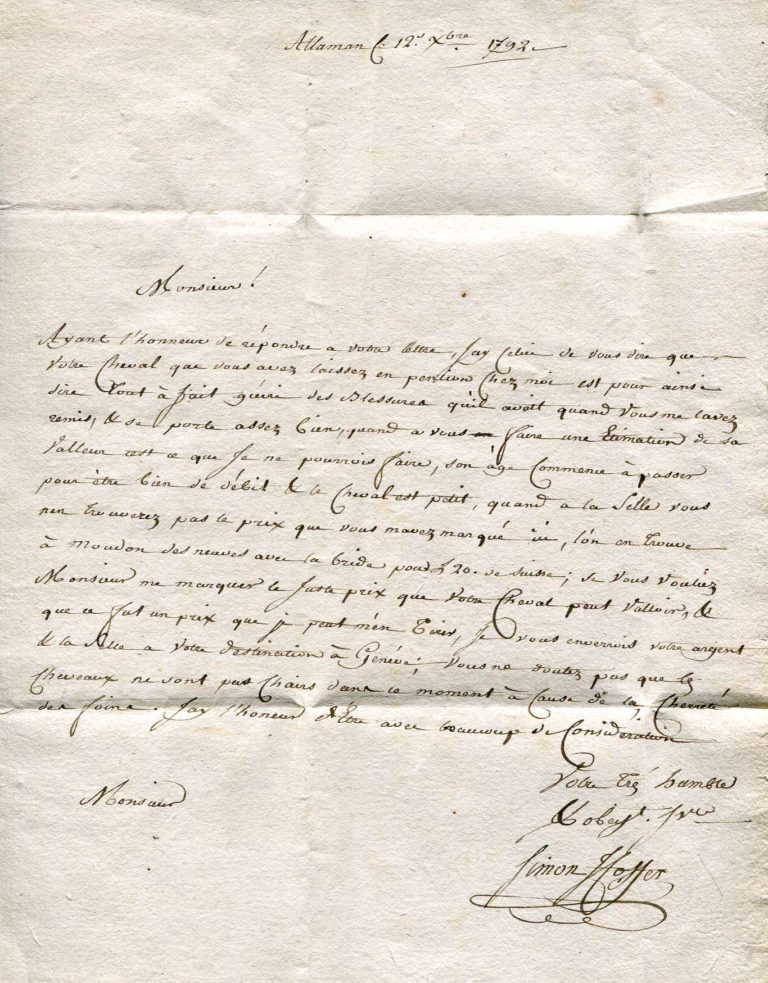 Allaman C. 12.e Xbre 1792.
Monsieur!
Ayant l'honneur de répondre a votre lettre, Jay Celui de vous dire que
Votre Cheval que vous avez laissez en pention Chez moi est pour ainsi
dire Tout à fait guéri des Blessures quil avoit quand vous me lavez
remis, & se porte assez bien, quand a vous faire une Eimation de sa
Valleur cest ce que Je ne pourrois faire, son âge Commence à passer
pour être bien de débit & le Cheval est petit, quand a la Selle vous
nen trouverez pas le prix que vous mavez marqué ici, l'on en trouve
à moudon des neuves avec la bride pour £ 20. de Suisse; si vous vouliez
Monsieur me marquer le Juste prix que Votre Cheval peut Valloir, &
que ce fut un prix que je peut m'en Tirer, Je vous enverrois votre argent
& la Selle a Votre destination à Genéve; Vous ne doutez pas que les
Chevaux ne sont pas Chairs dans ce moment à Cause de la Cherté
des foins. Jay l'honeur d'Etre avec beaucoup de Considération
Monsieur
Votre Trés humble
& obeist. Srvr
Simon Hoffer